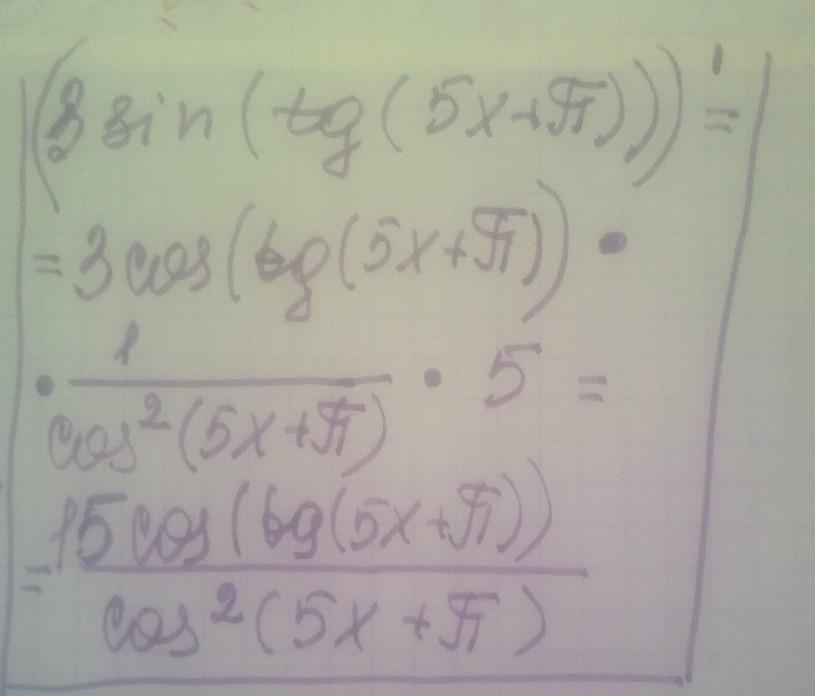 (3 sin (tg(5x+π)))' =
= 3 cos(tg(5x+π)) ·
· 1/cos²(5x+π) · 5 =
= 15 cos(tg(5x+π))/cos²(5x+π)